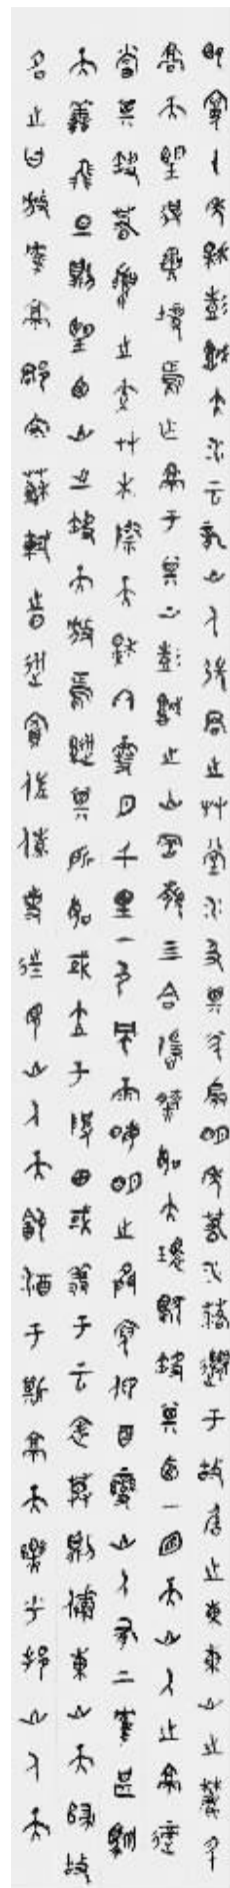 熙寧十年秋彭城大水云龍山人張君之草堂水及其半扉明年春水落遷于故居之東東山之麓升
高而望得異境焉作亭于其上彭城之山岡嶺四合隱然如大環獨缺其西一面而山人之亭適
當其缺春夏之交草木際天秋冬雪月千里一色風雨晦明之間俯仰百變山人有二鶴甚馴
而善飛旦則望西山之缺而放焉縱其所如或立于陂田或翔于云表暮則傃東山而歸故
名之曰放鶴亭郡守蘇軾時從賓佐僚吏往見山人而飲酒于斯亭而樂之挹山人而